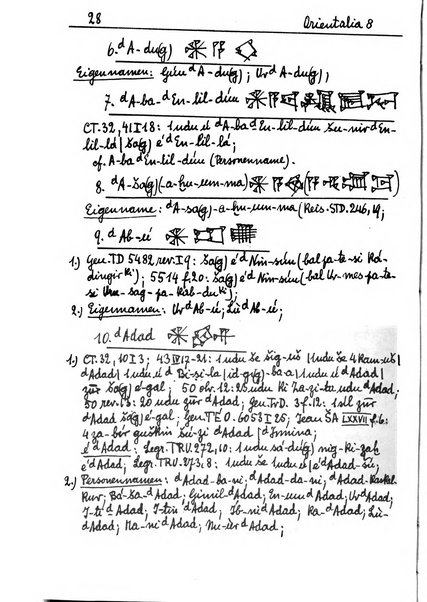 28 Orientalia 8
6. ᵈA-du(g)
Eigennamen: Géu ᵈA-du(g); Ur ᵈA-du(g);
7. ᵈA-ba-ᵈEn-lil-dím
CT. 32, 41 I 18: 1 udu ú ᵈA-ba ᵈEn-lil-dím šu-nir ᵈEn-
lil-lá | ša(g) é ᵈEn-lil-lá;
cf. A-ba ᵈEn-lil-dím (Personenname).
8. ᵈA-ša(g)(-a-ḫu-um-ma)
Eigenname: ᵈA-ša(g)-a-ḫu-um-ma (Reis. STD. 246, 19;
9. ᵈAb-ú
1.) Gen. TD 5482, rev. I 9: ša(g) é ᵈNin-sún (bal pa-te-si Ká-
dingir ᵏⁱ); 5514 f. 20: ša(g) é ᵈNin-sún (bal Ur-mes pa-te-
si -sag-pa-kab-du ᵏⁱ);
2.) Eigennamen: Ur ᵈAb-ú; Lù ᵈAb-ú;
10. ᵈAdad
1.) CT. 32, 10 I 3; 43 IV 17-21: 1 udu še šig-uš | 1 udu še 4 kam-uš |
ᵈAdad | 1 udu ú ᵈBi-si-la | id-g(g)-ba-a | 1 udu ú ᵈAdad |
zùr ša(g) é-gal; 50 obv. 12: 25 udu ki Za-zi-ta udu ᵈAdad;
50 rev. 13: 20 udu zùr ᵈAdad; Gen. TrD. 3 f. 12: 1 síl zùr
ᵈAdad ša(g) é-gal; Gen. TEO. 6053 I 25; Jean ŠA LXXVII f. 6:
4 za-bír guškin šú-zi ᵈAdad | ᵈIrmina;
é ᵈAdad: Legr. TRU. 272, 10: 1 udu sá-du(g) níg-ki-zaḫ
é ᵈAdad; Legr. TRU. 273, 8: 1 udu še 1 udu ú | é ᵈAdad-šú;
2.) Personennamen: ᵈAdad-ba-ni; ᵈAdad-da-ni; ᵈAdad-
Kur; Ba-ša-ᵈAdad; Gimil ᵈAdad; En-um ᵈAdad; Ur ᵈAdad;
I-ti ᵈAdad; I-tin ᵈAdad; Ib-ni ᵈAdad; Ka-ᵈAdad; Lù-
ᵈAdad; Ma-ni ᵈAdad; Nu-úr ᵈAdad;